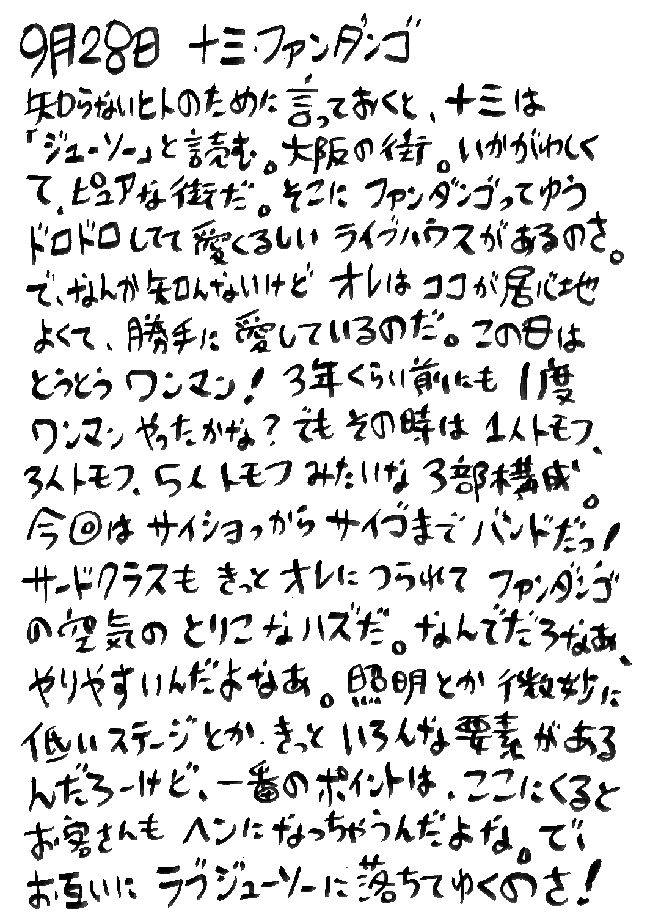 9月28日 十三・ファンダンゴ
知らないヒトのために言っておくと、十三は
「ジューソー」と読む。大阪の街。いかがわしく
て、ピュアな街だ。そこにファンダンゴってゆう
ドロドロしてて愛くるしいライブハウスがあるのさ。
で、なんか知んないけどオレはココが居心地
よくて、勝手に愛しているのだ。この日は
とうとうワンマン！3年くらい前にも1度
ワンマンやったかな？でもその時は1人トモフ、
3人トモフ、5人トモフみたいな3部構成。
今回はサイショっからサイゴまでバンドだっ！
サードクラスもきっとオレにつられてファンダンゴ
の空気のとりこなハズだ。なんでだろなあ、
やりやすいんだよなあ。照明とか微妙に
低いステージとか、きっといろんな要素がある
んだろーけど、一番のポイントは、ここにくると
お客さんもヘンになっちゃうんだよな。で、
お互いにラブジューソーに落ちてゆくのさ！